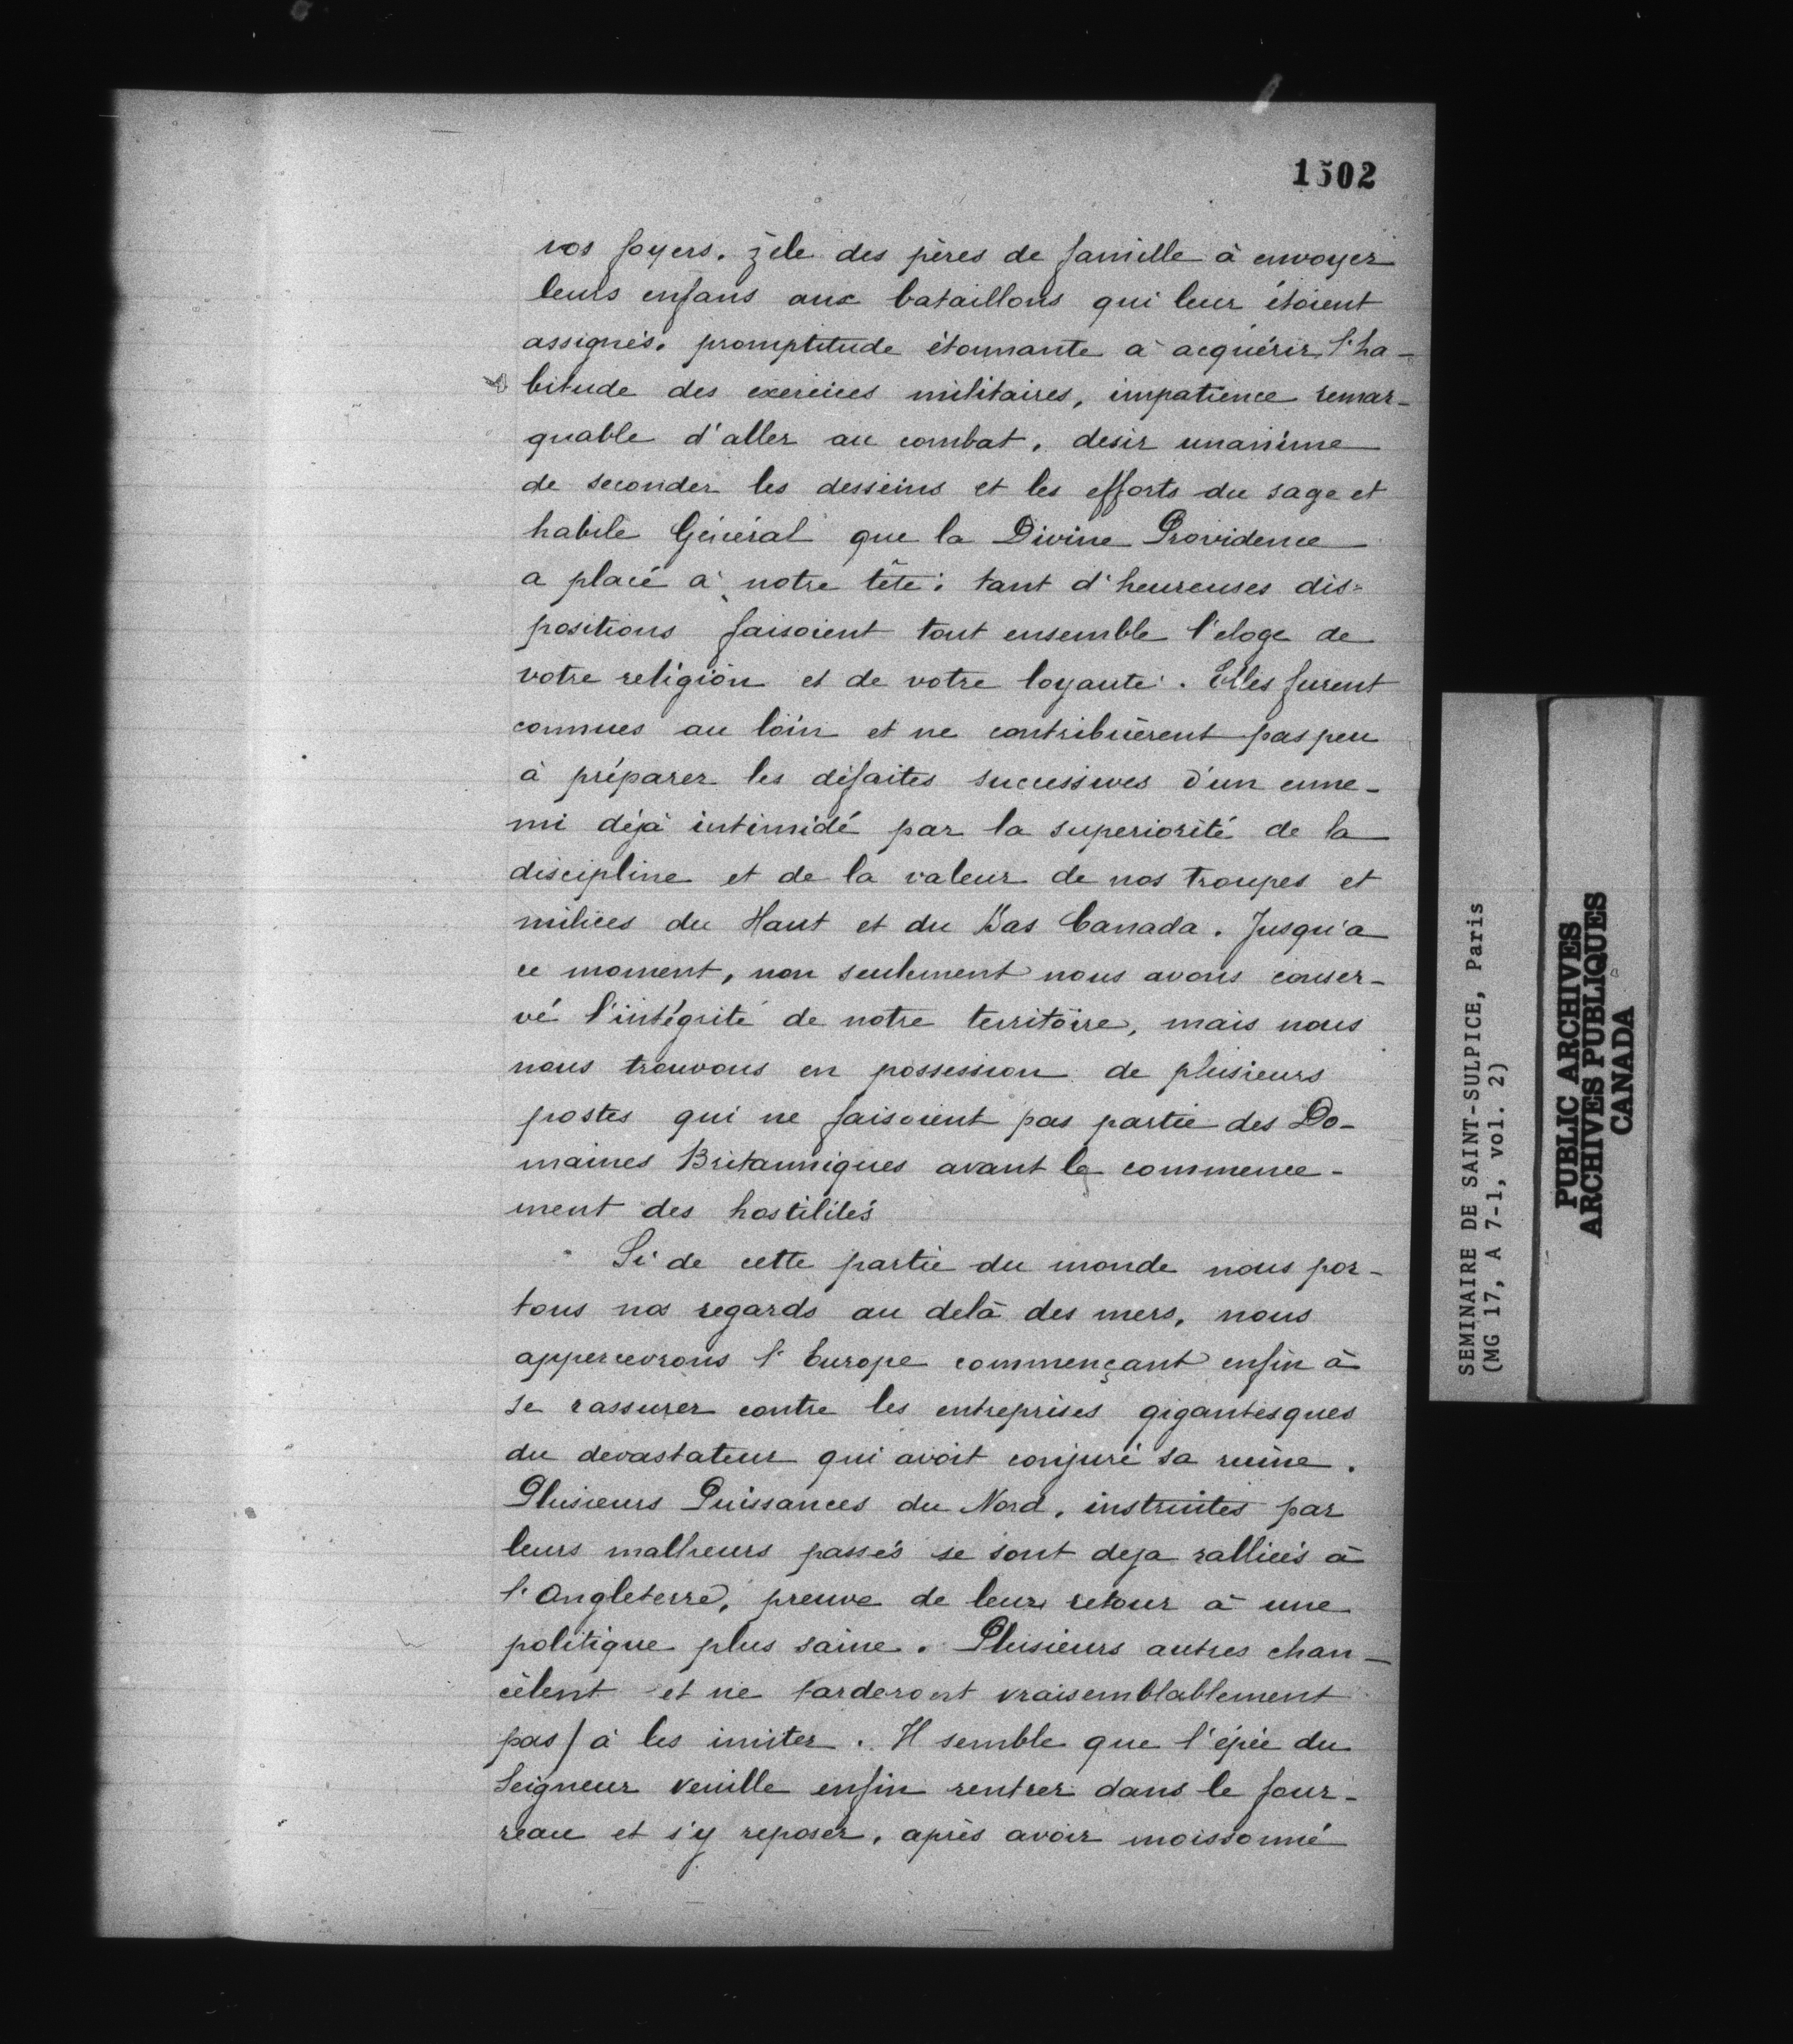 1502
vos foyers. zèle des pères de famille à envoyer
leurs enfans aux bataillons qui leur étoient
assignés. promptitude étonnante à acquérir l'ha-
bitude des exercices militaires, impatience remar-
quable d'aller au combat, desir unanime
de seconder les desseins et les efforts du sage et
habile Général que la Divine Providence
a placé à notre tête: tant d'heureuses dis-
positions faisoient tout ensemble l'eloge de
votre religion et de votre loyauté. Elles furent
connues au loin et ne contribuèrent pas peu
à préparer les défaites successives d'un enne-
mi déjà intimidé par la superiorité de la
discipline et de la valeur de nos troupes et
milices du Haut et du Bas Canada. Jusqu'a
ce moment, non seulement nous avons conser-
vé l'intégrité de notre territoire, mais nous
nous trouvons en possession de plusieurs
postes qui ne faisoient pas partie des Do-
maines Britanniques avant le commence-
ment des hostilités
Si de cette partie du monde nous por-
tons nos regards au delà des mers, nous
appercevrons l'Europe commençant enfin à
se rassurer contre les entreprises gigantesques
du devastateur qui avoit conjuré sa ruine.
Plusieurs Puissances du Nord, instruites par
leurs malheurs passés se sont deja ralliées à
l'Angleterre, preuve de leur retour à une
politique plus saine. Plusieurs autres chan-
cèlent et ne tarderont vraisemblablement
pas / à les imiter. Il semble que l'épée du
Seigneur veuille enfin rentrer dans le four-
reau et s'y reposer, après avoir moissonné
SEMINAIRE DE SAINT-SULPICE, Paris
(MG 17, A 7-1, vol. 2)
PUBLIC ARCHIVES
ARCHIVES PUBLIQUES
CANADA